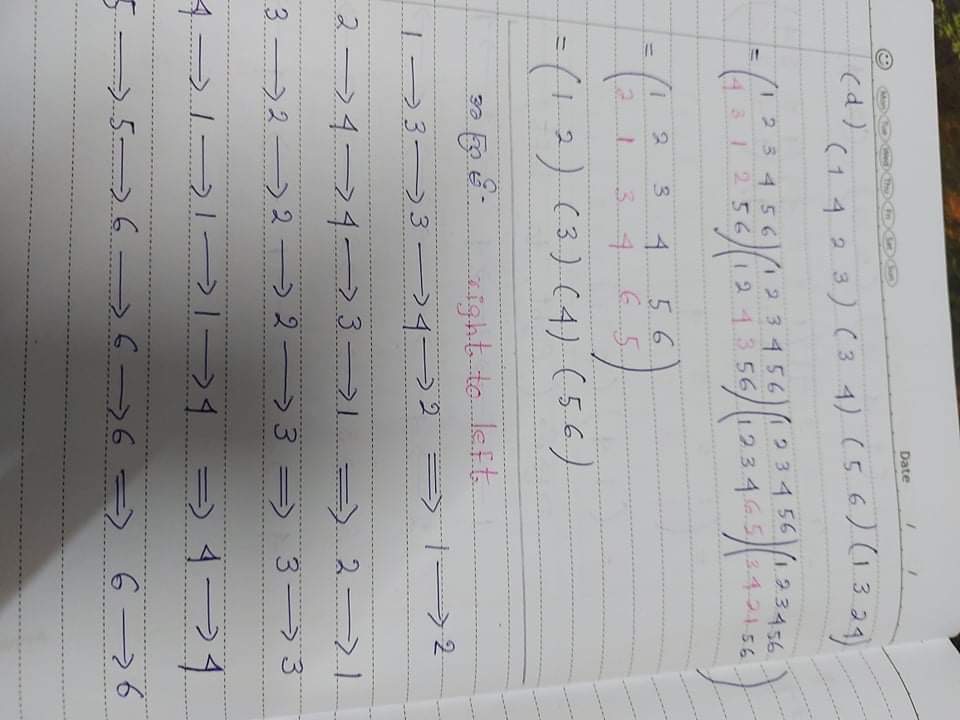 Date / /
Mon Tue Wed Thu Fri Sat Sun
(d) (1 4 2 3) (3 4) (5 6) (1 3 2 4)
= (1 2 3 4 5 6) (1 2 3 4 5 6) (1 2 3 4 5 6) (1 2 3 4 5 6)
(4 3 1 2 5 6) (1 2 4 3 5 6) (1 2 3 4 6 5) (3 4 2 1 5 6)
= (1 2 3 4 5 6)
(2 1 3 4 6 5)
= (1 2) (3) (4) (5 6)
right to left
1 → 3 → 3 → 4 → 2 ⇒ 1 → 2
2 → 4 → 4 → 3 → 1 ⇒ 2 → 1
3 → 2 → 2 → 2 → 3 ⇒ 3 → 3
4 → 1 → 1 → 1 → 4 ⇒ 4 → 4
5 → 5 → 6 → 6 → 6 ⇒ 6 → 6